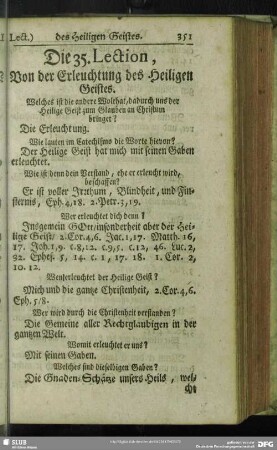 Lect.) des Heiligen Geistes. 351
Die 35. Lection,
Von der Erleuchtung des Heiligen
Geistes.
Welches ist die andere Wolthat, dadurch uns der
Heilige Geist zum Glauben an Christum
bringet?
Die Erleuchtung.
Wie lauten im Catechismo die Worte hievon?
Der Heilige Geist hat mich mit seinen Gaben
erleuchtet.
Wie ist denn dein Verstand, ehe er erleucht wird,
beschaffen?
Er ist voller Irrthum, Blindheit, und Fin-
sternis, Eph. 4,18. 2. Petr. 3,19.
Wer erleuchtet dich denn?
Insgemein GOtt/insonderheit aber der Hei-
lige Geist/ 2. Cor. 4,6. Jac. 1,17. Matth. 16,
17. Joh. 1,9. c. 8,12. c. 9,5. c. 12, 46. Luc. 2,
32. Ephes. 5, 14. c. 1, 17. 18. 1. Cor. 2,
10. 12.
Wen erleuchtet der Heilige Geist?
Mich und die gantze Christenheit, 2. Cor. 4,6.
Eph. 5/8.
Wer wird durch die Christenheit verstanden?
Die Gemeine aller Rechtglaubigen in der
gantzen Welt.
Womit erleuchtet er uns?
Mit seinen Gaben.
Welches sind dieselbigen Gaben?
Die Gnaden-Schätze unsers Heils, wel-
che
SLUB